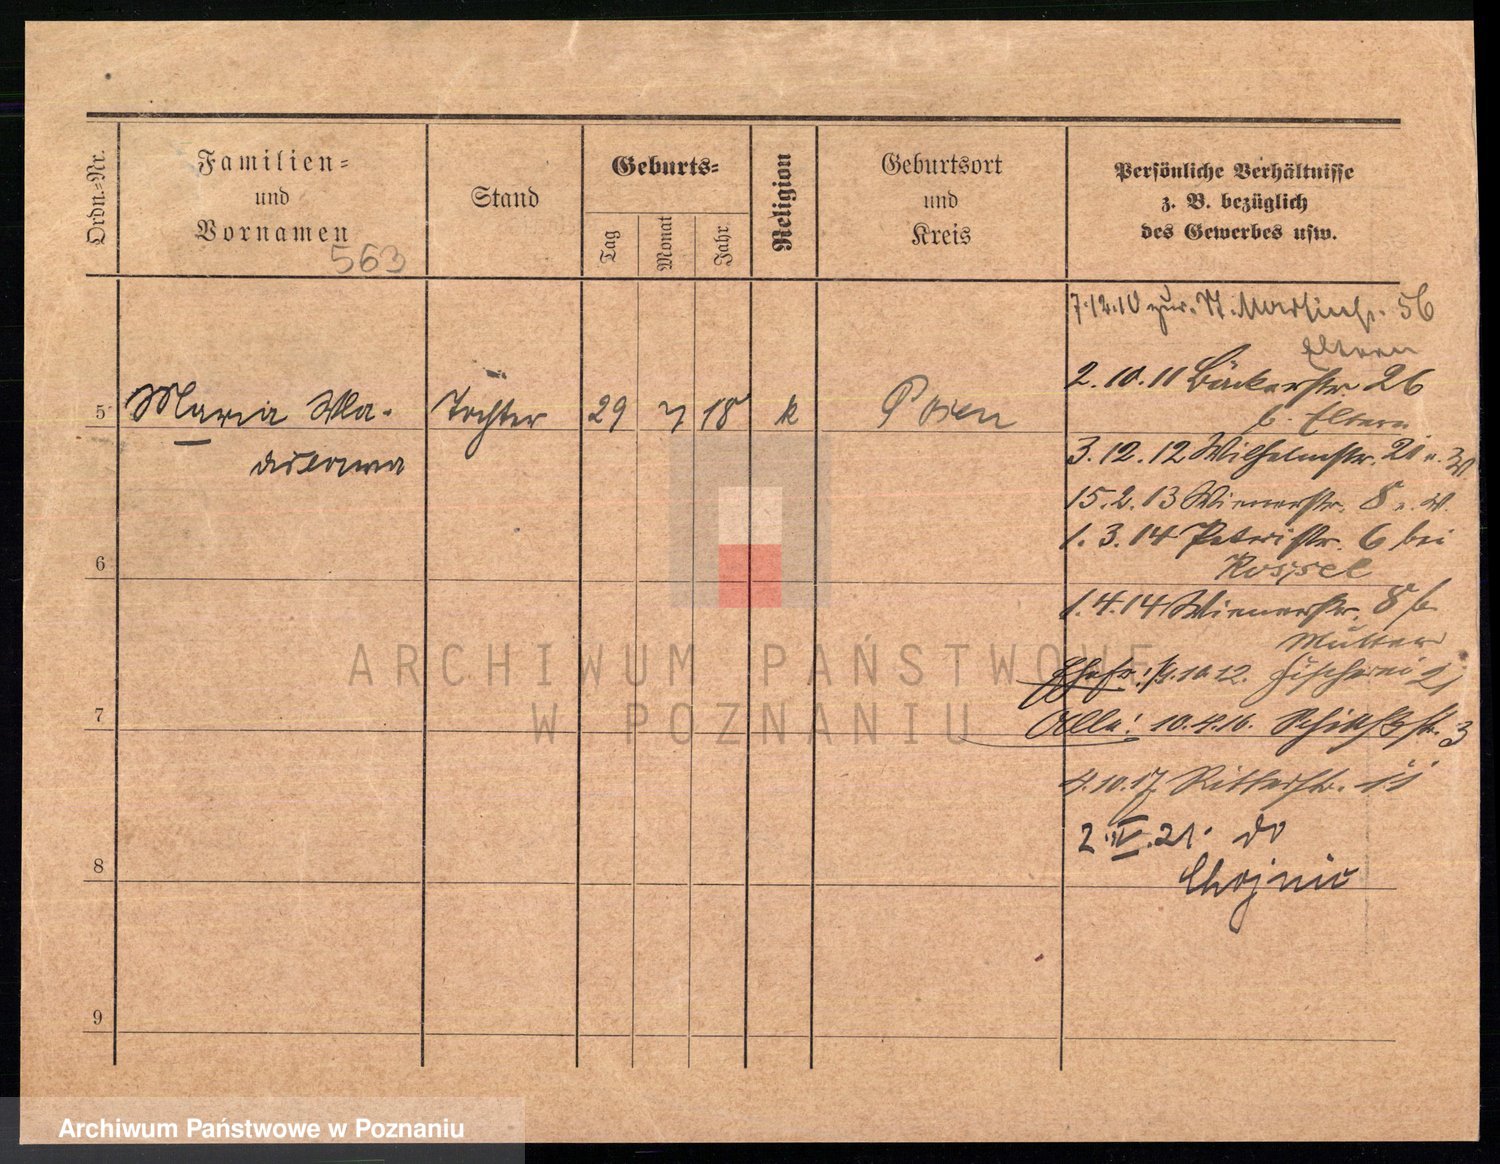 Ordn.-Nr.
Familien-
und
Vornamen
563
Stand
Geburts-
Tag
Monat
Jahr
Religion
Geburtsort
und
Kreis
Persönliche Verhältnisse
z. B. bezüglich
des Gewerbes usw.
7.12.10 zur. St. Martinstr. 56
Eltern
2.10.11 Bäckerstr. 26
b. Eltern
5 Maria Wla-
dislawa
Tochter
29 7 18 k Posen
3.12.12 Wilhelmstr. 21
15.2.13 Wienerstr. 8
1.3.14 Petristr. 6 bei
6
1.4.14 Wienerstr. 8 b
Mutter
Ehefr: 10.12. Fischerei 21
7
Alle: 10.4.16. 3
4.10.17 Ritterstr. 11
2.IV.21. do
Chojnic
8
9
ARCHIWUM PAŃSTWOWE
W POZNANIU
Archiwum Państwowe w Poznaniu